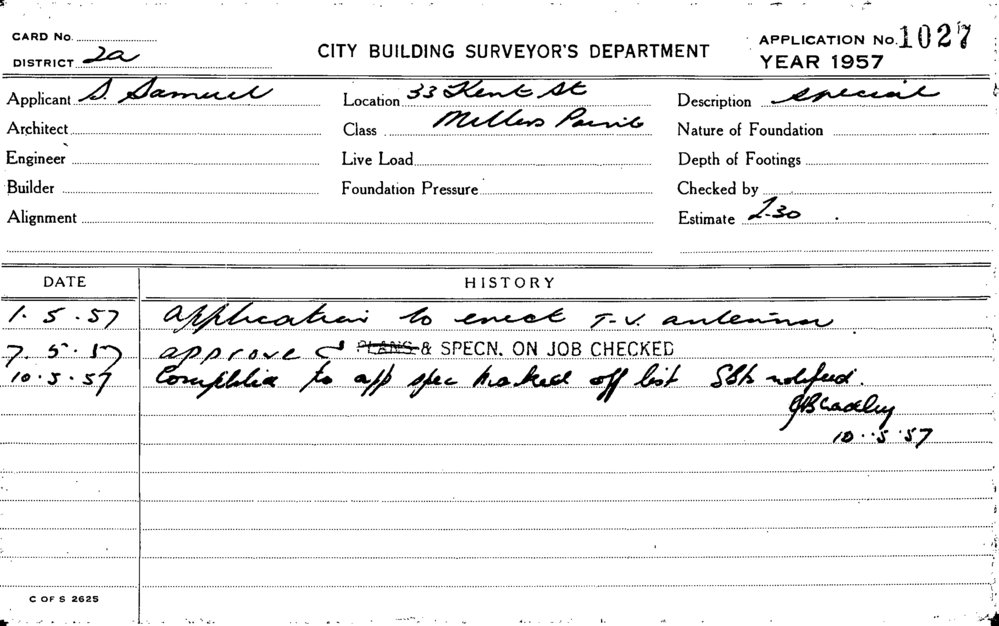 CARD No.
DISTRICT 2a
CITY BUILDING SURVEYOR'S DEPARTMENT
APPLICATION No. 1027
YEAR 1957
Applicant S. Samuel
Location 33 Kent St
Description special
Architect
Class Millers Point
Nature of Foundation
Engineer
Live Load
Depth of Footings
Builder
Foundation Pressure
Checked by
Alignment
Estimate £30
DATE HISTORY
1. 5. 57 application to erect T-V. antenna
7. 5. 57 approve PLANS & SPECN. ON JOB CHECKED
10. 5. 57 to app spec marked off list notified.
Bradley
10. 5. 57
C OF S 2625